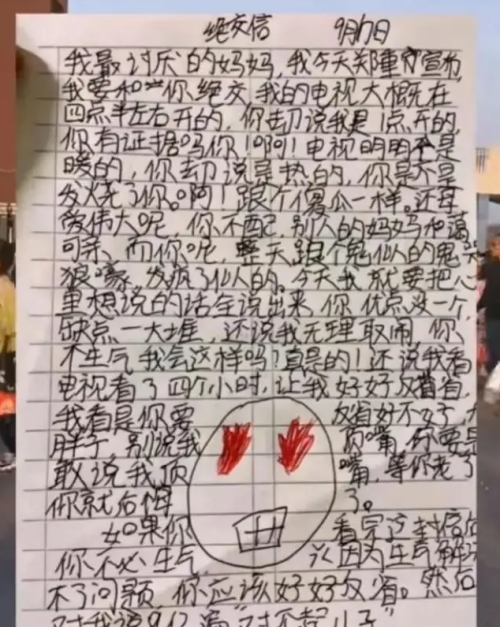 绝交信 9月17日
我最讨厌的妈妈,我今天郑重宣布,
我要和你绝交,我的电视大概在
四点半左右开的,你却说我是1点开的,
你有证据吗你!啊!电视明明是
暖的,你却说是热的,你是不是
发烧了你。啊!跟个傻瓜一样。还母
爱伟大呢,你不配,别人的妈妈和蔼
可亲,而你呢,整天跟个鬼似的鬼哭
狼嚎,发疯了似的。今天我就要把心
里想说的话全说出来,你优点没一个,
缺点一大堆,还说我无理取闹,你
不生气我会这样吗?真是的!还说我看
电视看了四个小时,让我好好反省省,
我看是你要 反省好不好了,
胖子,别说我 顶嘴,你要是
敢说我顶 嘴,等你老了
你就后悔 了。
如果你 看完这封信后
你不必生气 因为生气解决
不了问题,你应该好好反省。然后
对我说 遍“对不起儿子”